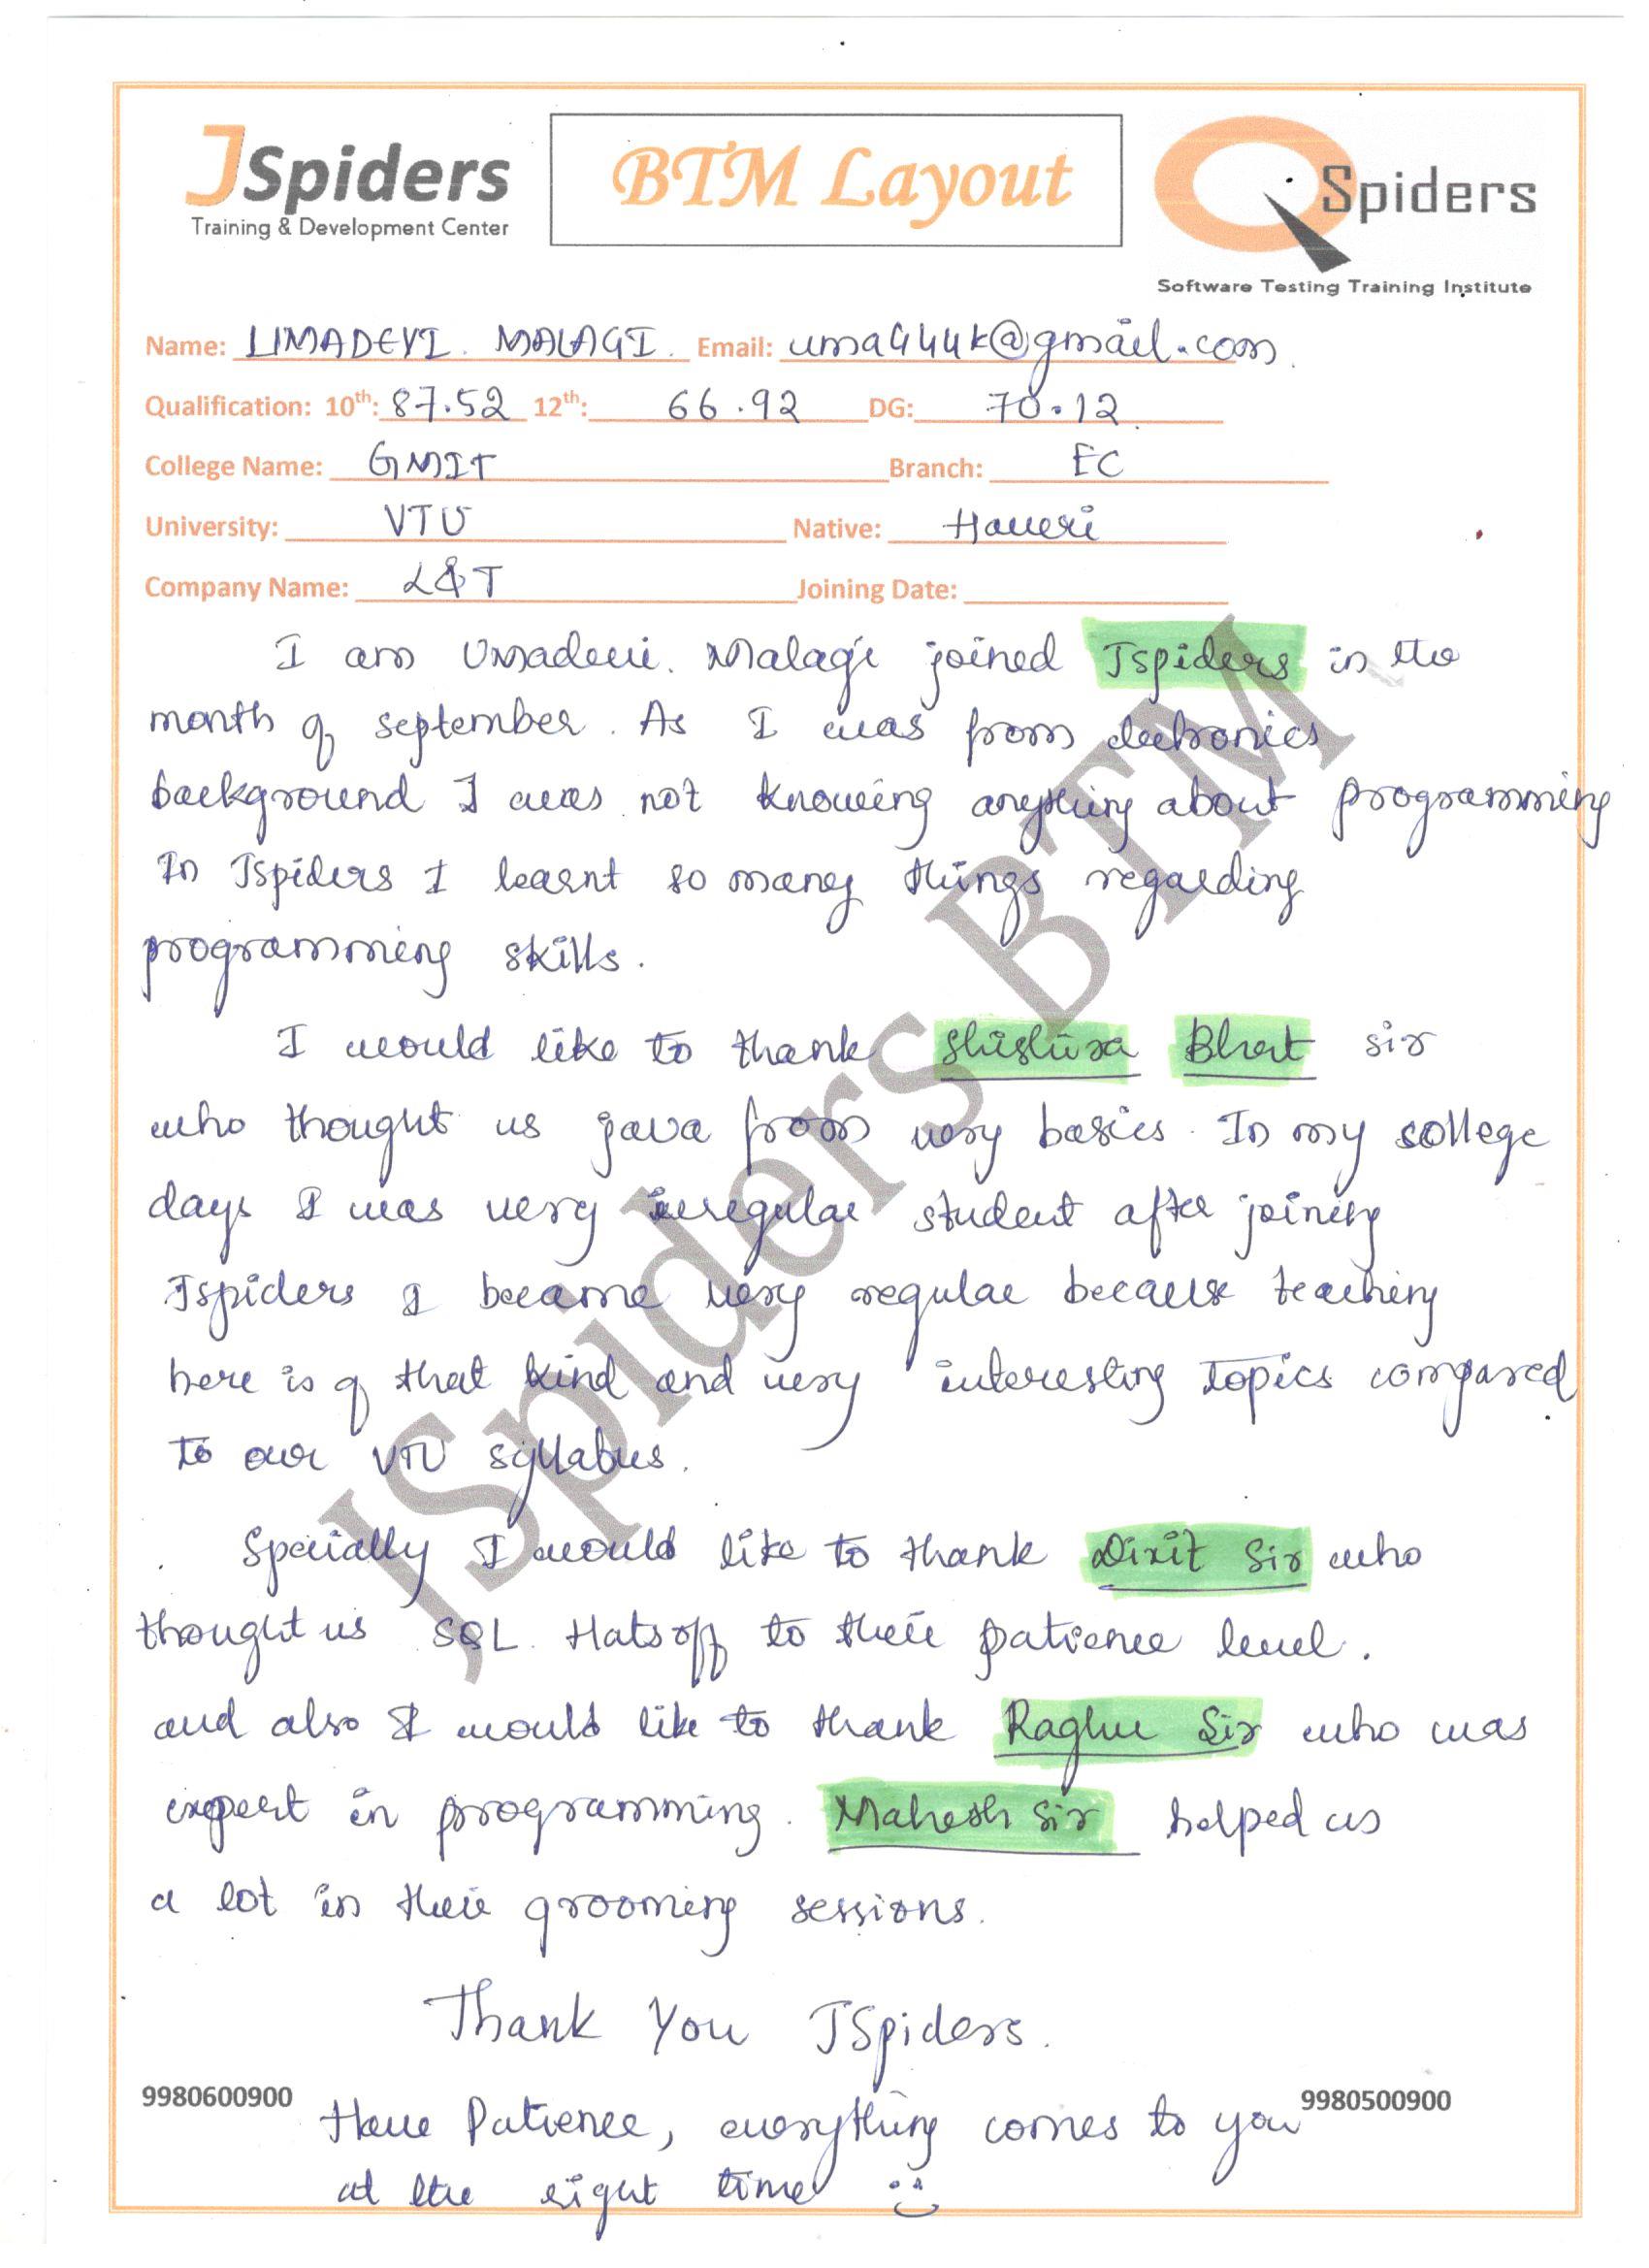 JSpiders
Training & Development Center
BTM Layout
QSpiders
Software Testing Training Institute
Name: UMADEVI. MALAGI. Email: uma444k@gmail.com.
Qualification: 10th: 87.52 12th: 66.92 DG: 70.12
College Name: GMIT Branch: EC
University: VTU Native: Haveri
Company Name: L&T Joining Date:
I am Umadevi. Malagi joined Jspiders in the
month of september. As I was from electronics
background I was not knowing anything about programming
In Jspiders I learnt so many things regarding
programming skills.
I would like to thank Shishira Bhat sir
who thought us java from very basics. In my college
days I was very irregular student after joining
Jspiders I became very regular because teaching
here is of that kind and very interesting topics compared
to our VTU syllabus.
Specially I would like to thank Dixit Sir who
thought us SQL. Hatsoff to their patience level.
and also I would like to thank Raghu Sir who was
expert in programming. Mahesh Sir helped us
a lot in their grooming sessions.
Thank You JSpiders.
9980600900 9980500900
Have Patience, everything comes to you
at the right time
JSpiders BTM